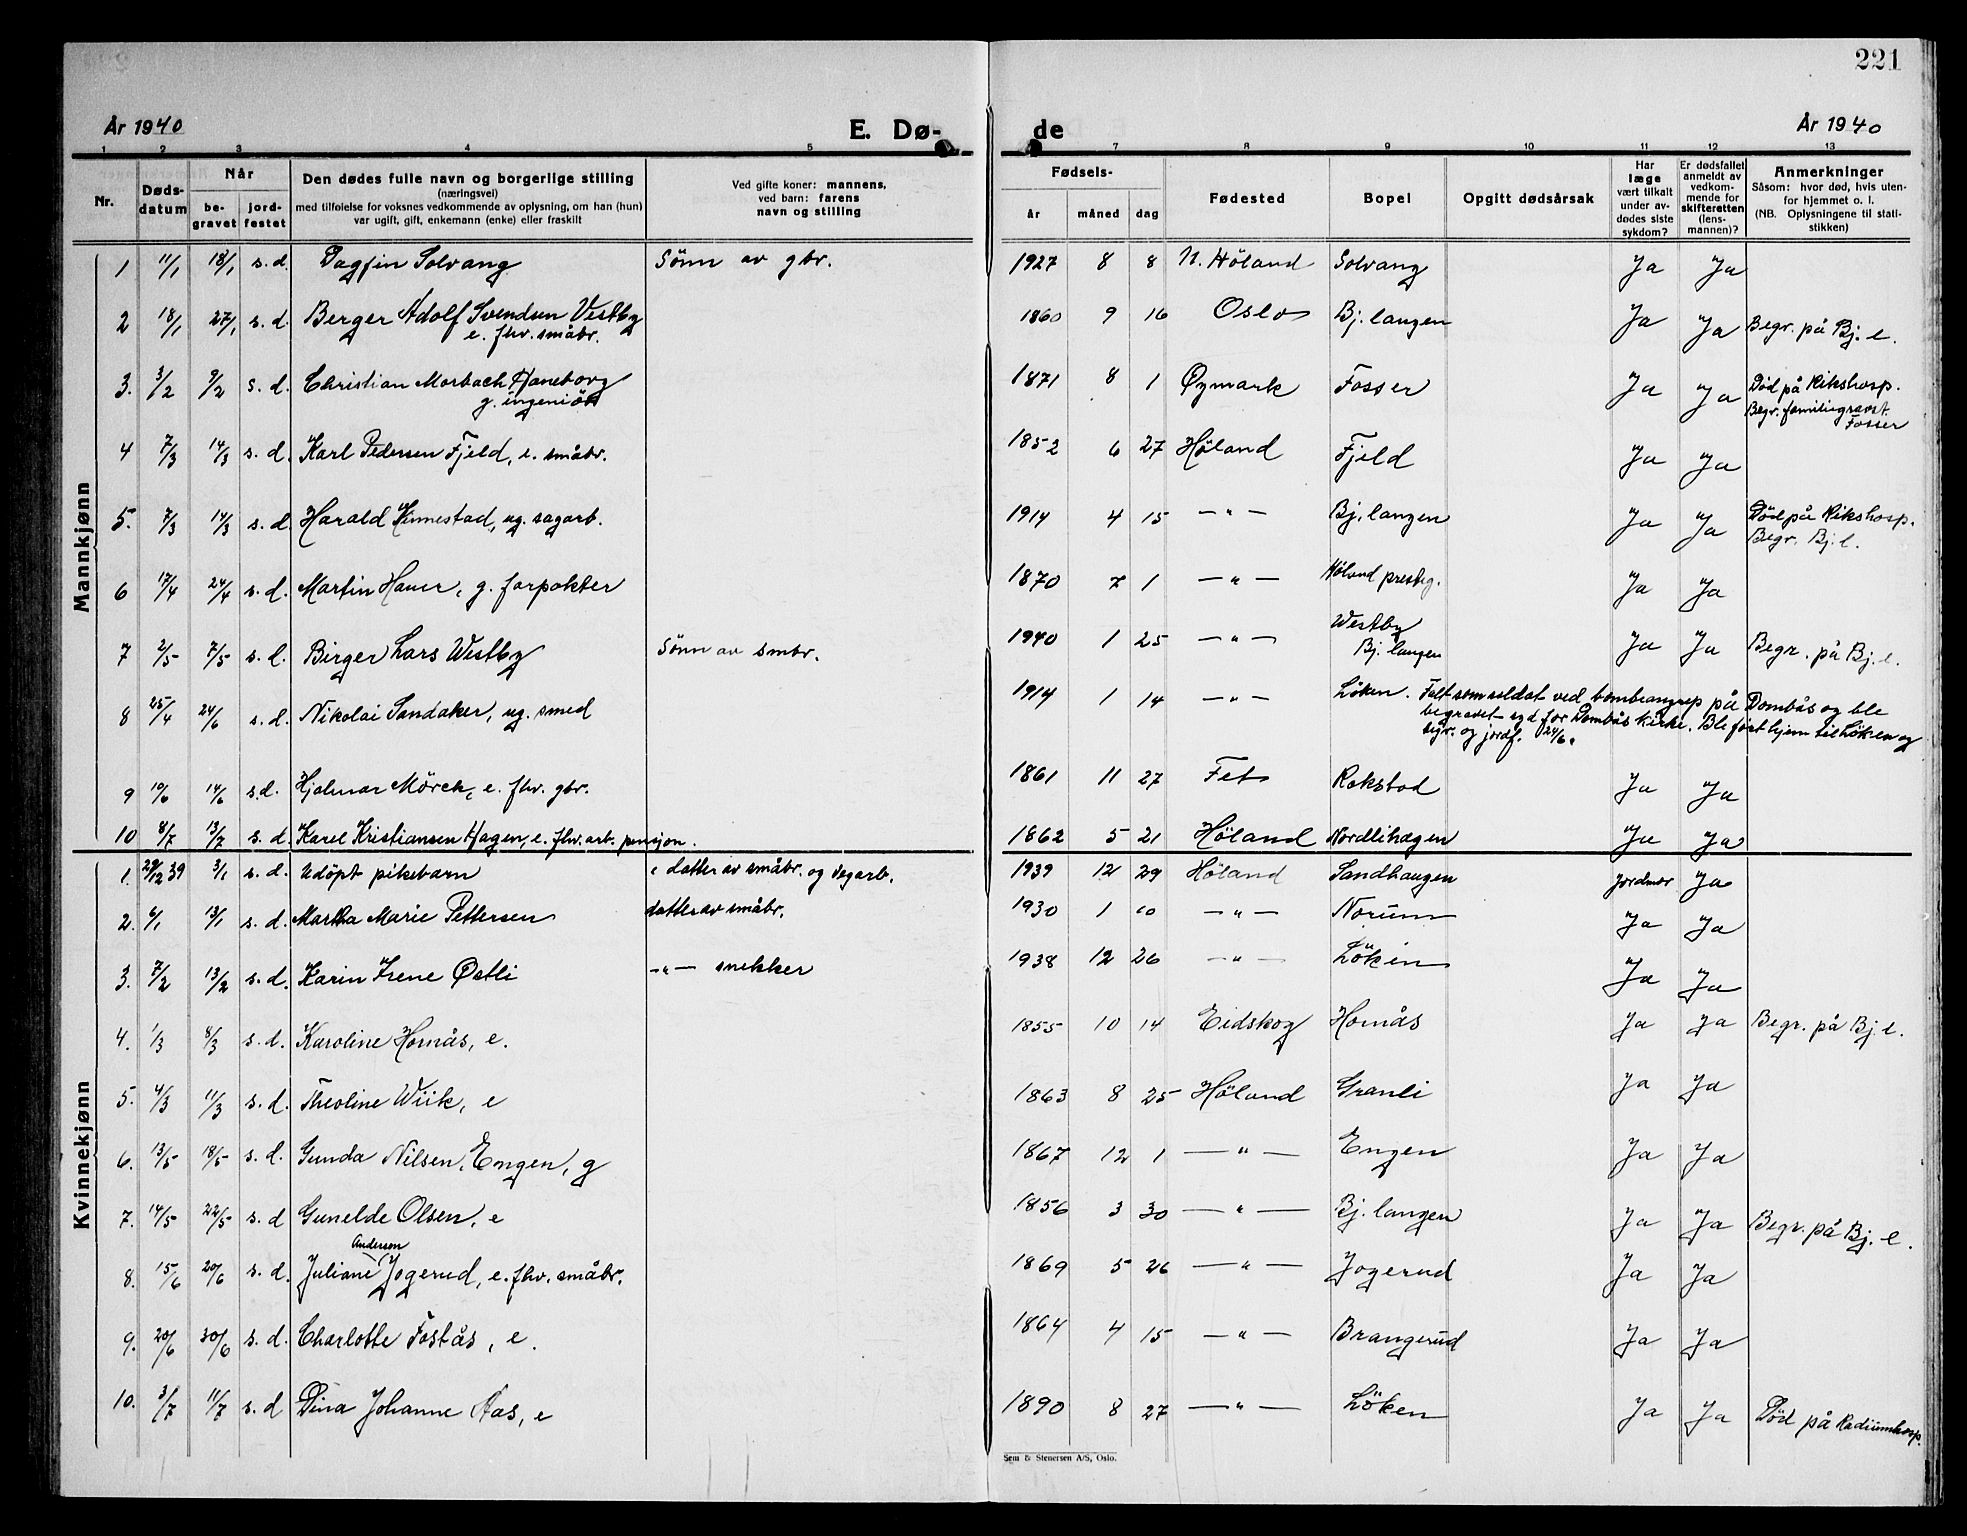 221
År 1940
E. Dø-
de
År 1940
1 2 3 4 5 7 8 9 10 11 12 13
Nr.
Døds-
datum
Når
be-
gravet
jord-
festet
Den dødes fulle navn og borgerlige stilling
(næringsvei)
med tilføielse for voksnes vedkommende av oplysning, om han (hun)
var ugift, gift, enkemann (enke) eller fraskilt
Ved gifte koner: mannens,
ved barn: farens
navn og stilling
Fødsels-
år måned dag
Fødested
Bopel
Opgitt dødsårsak
Har
læge
vært tilkalt
under av-
dødes siste
sykdom?
Er dødsfallet
anmeldt av
vedkom-
mende for
skifteretten
(lens-
mannen)?
Anmerkninger
Såsom: hvor død, hvis uten-
for hjemmet o. l.
(NB. Oplysningene til stati-
stikken)
Mannkjønn
1 11/1 18/1 s. d. Dagfin Solvang Sönn av gbr. 1927 8 8 N. Höland Solvang Ja Ja
2 18/1 27/1 s. d. Berger Adolf Svendsen Vestby 1860 9 16 Oslo Bj. langen Ja Ja Begr. på Bj. l.
e. fhv. småbr.
3. 3/2 9/2 s. d. Christian Morbach Haneborg 1871 8 1 Øymark Fosser Ja Ja Död på Rikshosp.
g. ingeniör Begr. familiegravst.
Fosser
4 7/3 14/3 s. d. Karl Pedersen Fjeld, e. småbr. 1852 6 27 Höland Fjeld Ja Ja
5. 7/3 14/3 s. d. Harald Kinnestad, ug. sagarb. 1914 4 15 — " — Bj. langen Ja Ja Död på Rikshosp.
Begr. Bj. l.
6 17/4 24/4 s. d. Martin Hauer, g. forpakter 1870 7 1 — " — Höland presteg. Ja Ja
7 2/5 7/5 s. d. Birger Lars Westby Sönn av smbr. 1940 1 25 — " — Westby
Bj. langen Ja Ja Begr. på Bj. l.
8 25/4 24/6 s. d. Nikolai Sandaker, ug. smed 1914 1 14 — " — Löken. Falt som soldat ved bombeangrep på Dombås og ble
begravet syd for Dombås kirke. Ble fört hjem til Löken og
begr. og jordf. 24/6.
9 10/6 14/6 s. d. Hjalmar Mörch, e. fhv. gbr. 1861 11 27 Fet Rakstad Ja Ja
10 8/7 13/7 s. d. Karel Kristiansen Hagen, e. fhv. arb. pensjon. 1862 5 21 Höland Nordlihagen Ja Ja
Kvinnekjønn
1. 29/12 39 3/1 s. d. Udöpt pikebarn datter av småbr. og vegarb. 1939 12 29 Höland Sandhaugen Jordmor Ja
2. 6/1 13/1 s. d. Martha Marie Pettersen datter av småbr. 1930 1 10 — " — Norum Ja Ja
3. 7/2 13/2 s. d. Karin Irene Østli — " — snekker 1938 12 26 — " — Löken Ja Ja
4. 1/3 8/3 s. d. Karoline Hornås, e. 1855 10 14 Eidskog Hornås Ja Ja Begr. på Bj. l.
5. 4/3 11/3 s. d. Theoline Wiik, e 1863 8 25 Höland Granli Ja Ja
6. 13/5 18/5 s. d. Gunda Nilsen Engen, g 1867 12 1 — " — Engen Ja Ja
7. 14/5 22/5 s. d Gunelde Olsen, e 1856 3 30 — " — Bj. langen Ja Ja Begr. på Bj. l.
Andersen
8. 15/6 20/6 s. d. Juliane Jogerud, e. fhv. småbr. 1869 5 26 — " — Jogerud Ja Ja
9. 20/6 30/6 s. d. Charlotte Fostås, e. 1864 4 15 — " — Brangerud Ja Ja
10. 3/7 11/7 s. d Dina Johanne Aas, e 1890 8 27 — " — Löken Ja Ja Död på Radiumhosp.
Sem & Stenersen A/S, Oslo.